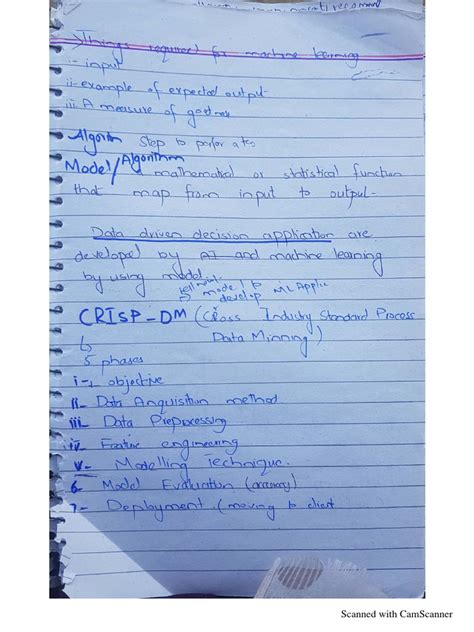 recomend
Things required for machine learning
i- input
ii- example of expected output
iii. A measure of goodness
Algorithm Step to perfor a task
Model/Algorithm
mathematical or statistical function
that map from input to output-
Data driven decision application are
developed by AI and machine learning
by using model.
mode to
develop ML Applic
CRISP-DM (Cross Industry Standard Process
Data Minning)
5 phases
i- objective
ii- Data Anquisition method
iii- Data Preprocessing
iv- Feature engineering
v- Modelling Technique.
6- Model Evaluation (accuracy)
7- Deployment (moving to client
Scanned with CamScanner